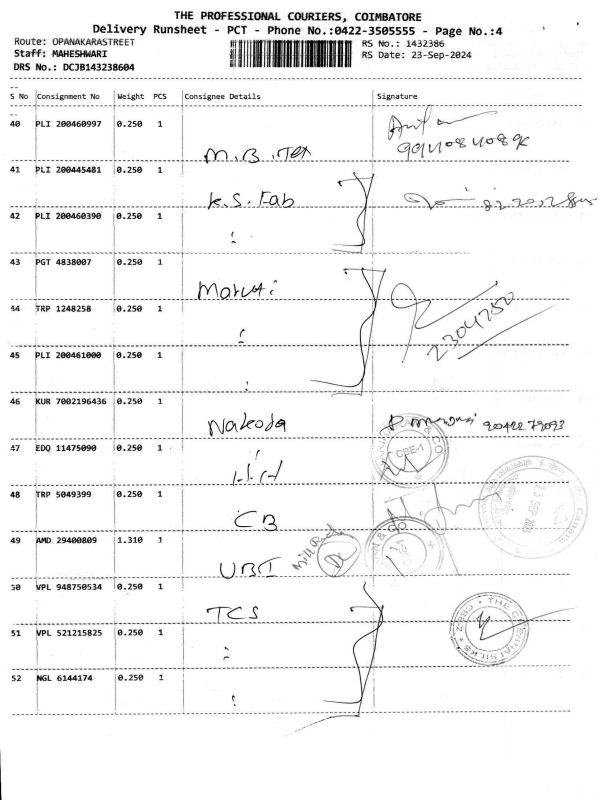 THE PROFESSIONAL COURIERS, COIMBATORE
Delivery Runsheet - PCT - Phone No.:0422-3505555 - Page No.:4
Route: OPANAKARASTREET
RS No.: 1432386
Staff: MAHESHWARI
RS Date: 23-Sep-2024
DRS No.: DCJB143238604
S No Consignment No Weight PCS Consignee Details Signature
40 PLI 200460997 0.250 1
M.B.Tex
41 PLI 200445481 0.250 1
K.S. Fab
42 PLI 200460390 0.250 1
43 PGT 4838007 0.250 1
Maruti
44 TRP 1248258 0.250 1
2304750
45 PLI 200461000 0.250 1
46 KUR 7002196436 0.250 1
Nakoda
47 EDQ 11475090 0.250 1
CBE-1
48 TRP 5049399 0.250 1
CB
49 AMD 29400809 1.310 1
UBI
50 VPL 948750534 0.250 1
TCS
THE CHENNAI SILKS
51 VPL 521215825 0.250 1
52 NGL 6144174 0.250 1